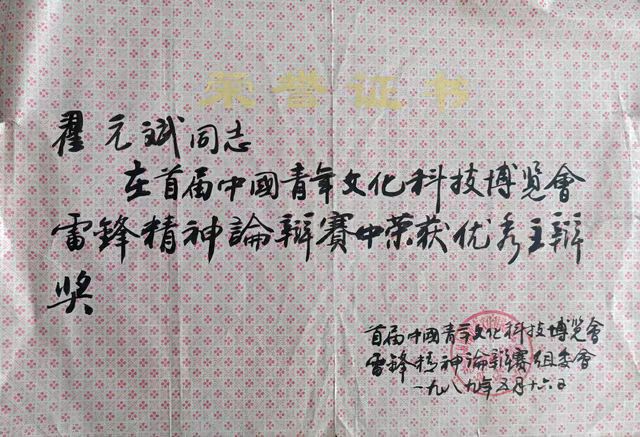 荣誉证书
瞿元斌同志
在首届中國青年文化科技博览會
雷锋精神論辯赛中荣获优秀主辯
奖
首届中國青年文化科技博览會
雷锋精神論辯赛组委會
一九八九年五月十六日